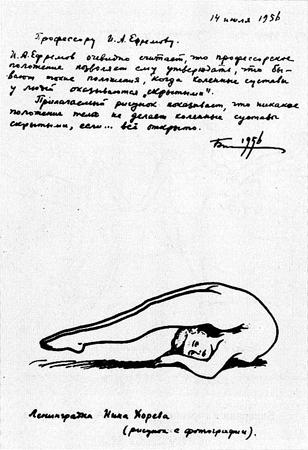 14 июля 1956
Профессору И.А. Ефремову.
И.А. Ефремов очевидно считает, что профессорское
положение позволяет ему утверждать, что бы-
вают такие положения, когда коленные суставы
у людей оказываются "скрытыми".
Прилагаемый рисунок показывает, что никакое
положение тела не делает коленные суставы
скрытыми, если... всё открыто.
1956
Ленинградка Нина Корева
(рисунок с фотографии).